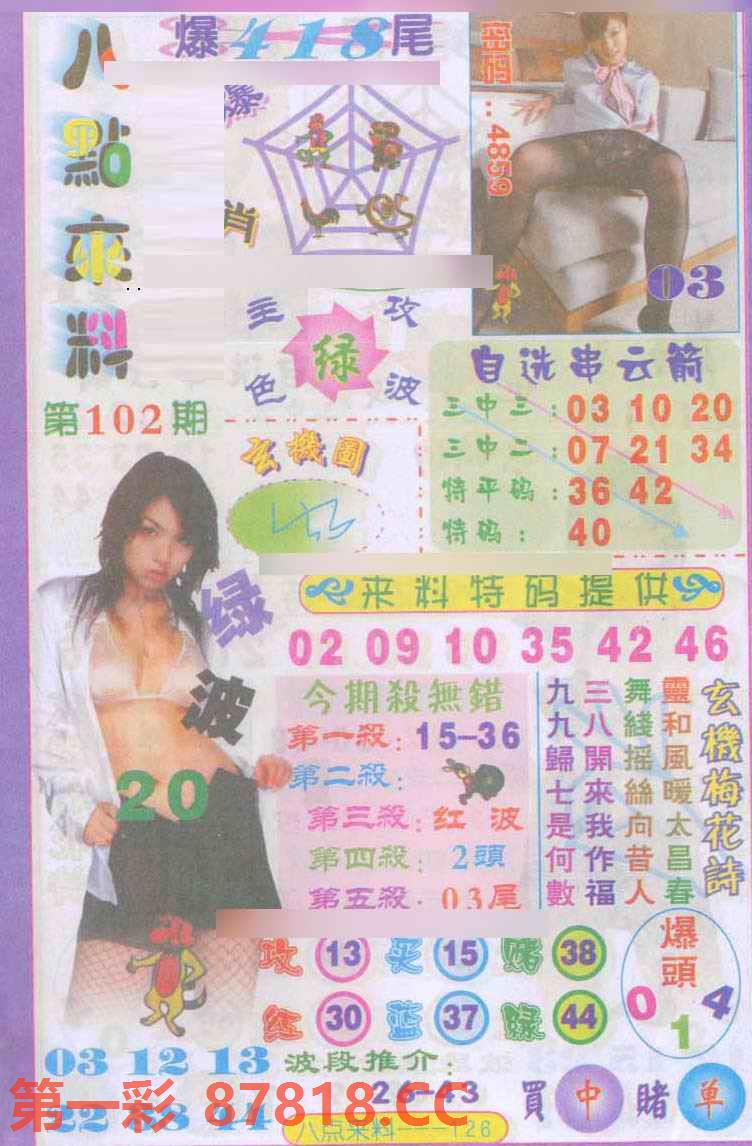 八點來料
爆418尾
爆
肖
密码…4859
03
主攻
绿
色波
第102期
自选串云箭
三中三：03 10 20
三中二：07 21 34
特平码：36 42
特码：40
玄機圖
绿波
20
来料特码提供
02 09 10 35 42 46
今期殺無錯
第一殺：15-36
第二殺：
第三殺：红波
第四殺：2頭
第五殺：03尾
玄機梅花詩
靈和風暖太昌春
舞綫摇絲向昔人
三八開來我作福
九九歸七是何數
攻 13 买 15 赌 38
红 30 蓝 37 绿 44
爆頭
0 1 4
03 12 13
波段推介：
26-43
買中賭单
第一彩 87818.CC
八点来料——126